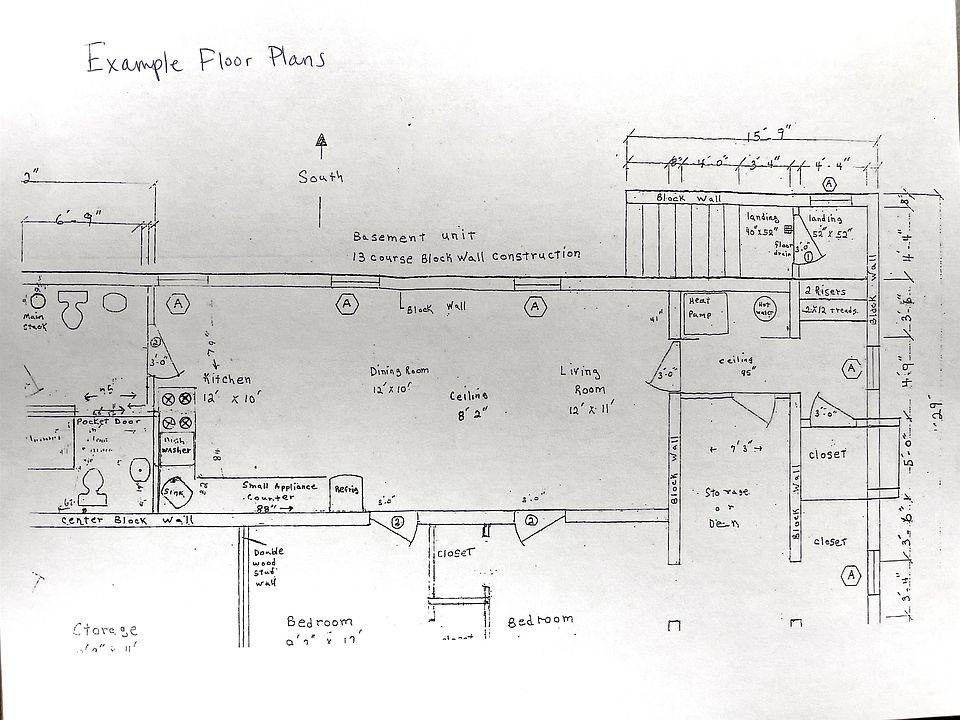 Example Floor Plans
15'-9"
2"
South
8" 4'-0" 3'-4" 4'-4"
A
6'-9"
Block Wall
8"
landing
40"x52"
floor
drain
landing
52" x 52"
3'-0"
1
4'-4"
Basement unit
13 course Block Wall Construction
Block Wall
Main
stack
A
A
A
Block Wall
Heat
Pump
Hot
water
2 Risers
2x12 treads
3'-6"
41"
2
3'-0"
7'9"
Kitchen
12' x 10'
Dining Room
12' x 10'
Ceiling
8' 2"
Living
Room
12' x 11'
3'-0"
ceiling
95"
A
4'-9"
29'
45"
Pocket Door
Dish
washer
Sink
48"
Small Appliance
Counter
88"
Refrig
3'-0"
3'-0"
Block Wall
7'3"
Storage
or
Den
Block Wall
3'-0"
closet
5'-0"
Center Block Wall
2
2
closet
3'-6"
Double
wood
stud
wall
closet
A
3'-4"
Storage
Bedroom
Bedroom
closet